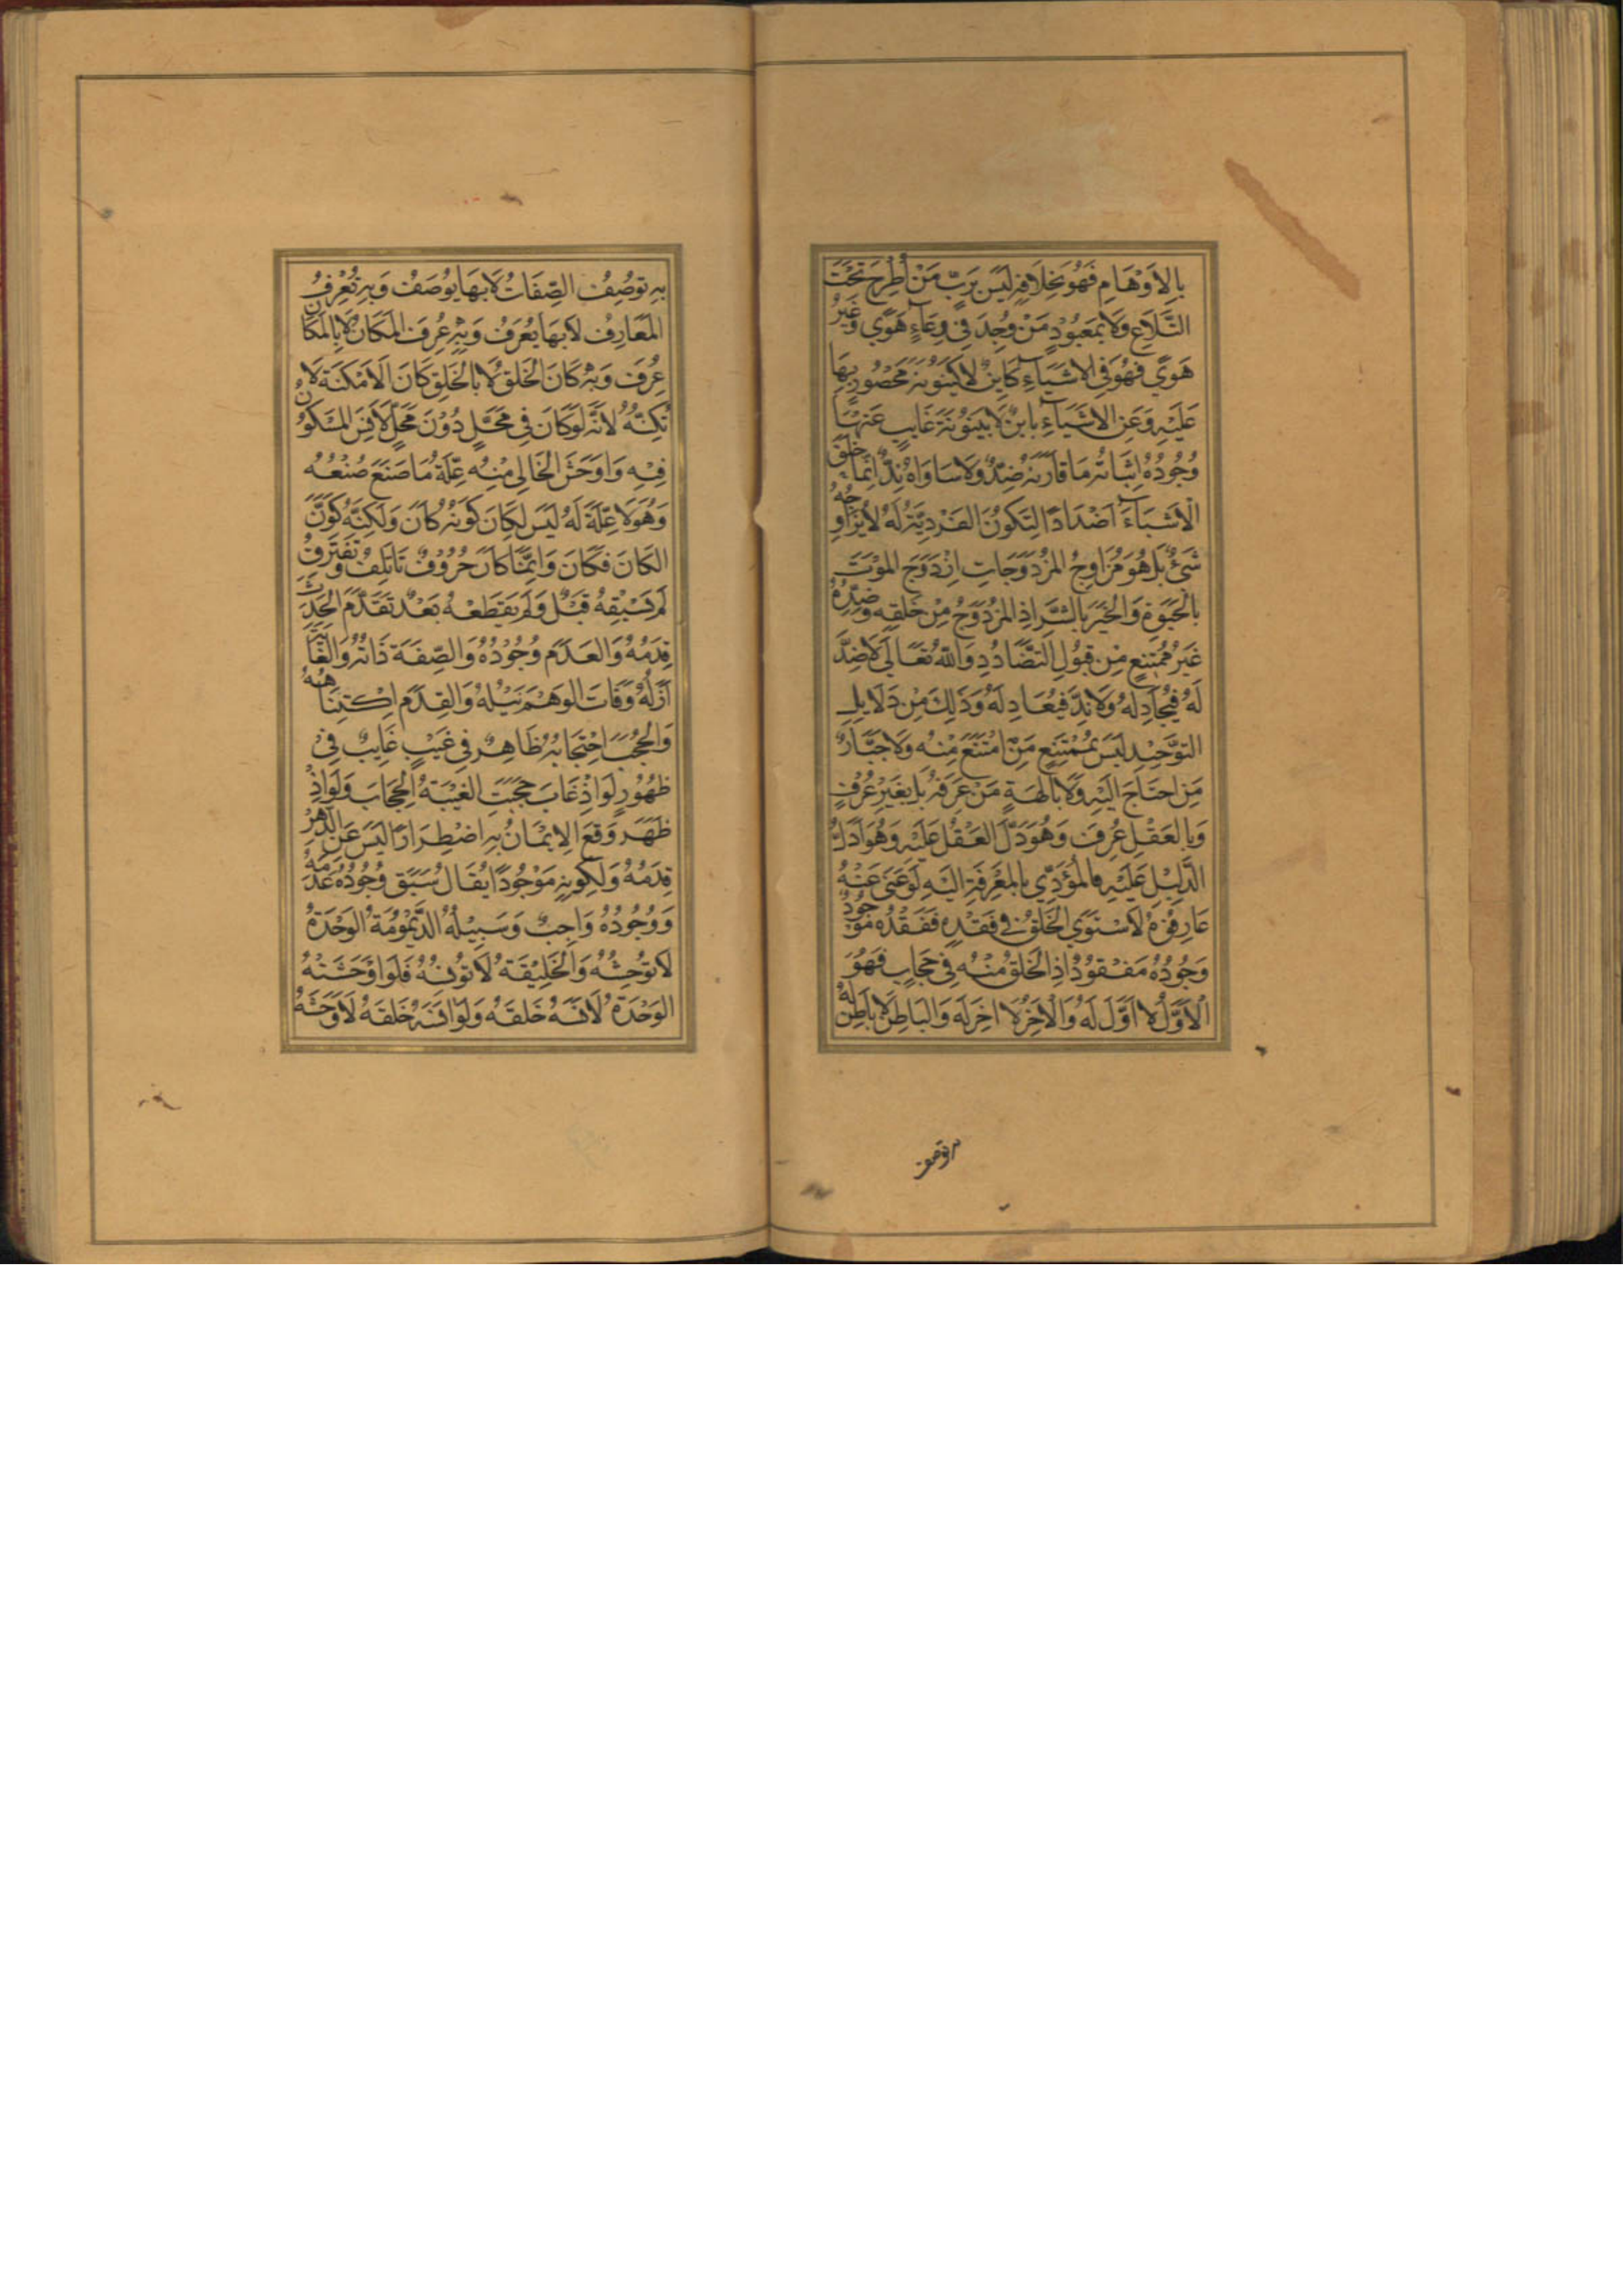 بِالاَوْهَامِ فَهُوَ بِخِلَافِهِ لَيْسَ بِرَبٍّ مَنْ اُطْرِحَ تَحْتَ
التَّلَاعِ وَلَا بِمَعْبُودٍ مَنْ وُجِدَ فِى وِعَاءٍ هَوًى وَغَيْرُ
هَوًى فَهُوَ فِى الاَشْيَاءِ كَايِنٌ لَا كَيْنُونَةَ مَحْصُورٍ بِهَا
عَلَيْهِ وَعَنِ الاَشْيَاءِ بَايِنٌ لَا بَيْنُونَةَ غَايِبٍ عَنْهَا
وُجُودُهُ اِثْبَاتُهُ مَا قَارَنَهُ ضِدٌّ وَلَا سَاوَاهُ نِدٌّ اِنَّمَا خَلَقَ
الْاَشْيَاءَ اَضْدَادًا لِتَكُونَ الفَرْدِيَّةُ لَهُ لَا يُزَاوِجُهُ
شَىْءٌ بَلْ هُوَ مُزَاوِجُ المُزْدَوَجَاتِ اِزْدَوَجَ المَوْتَ
بِالْحَيَوةِ وَالْخَيْرَ بِالشَّرِّ اِذِ المُزْدَوَجُ مِنْ خَلْقِهِ وَضِدُّهُ
غَيْرُ مُمْتَنِعٍ مِنْ قَبُولِ التَّضَادُدِ وَاللّهُ تَعَالَى لَا ضِدَّ
لَهُ فَيُجَادِلَهُ وَلَا نِدَّ فَيُعَادِلَهُ وَذَلِكَ مِنْ دَلَايِلِ
التَّوْحِيْدِ لَيْسَ بِمُمْتَنِعٍ مَنْ امْتَنَعَ مِنْهُ وَلَا جَبَّارٌ
مَنِ احْتَاجَ اِلَيْهِ وَلَا بِالهَةٍ مَنْ عَرَفَهُ بَا بِغَيْرِ عُرْفٍ
وَبِالعَقْلِ عُرِفَ وَهُوَ دَلَّ العَقْلَ عَلَيْهِ وَهُوَ اَدَلُّ
الدَّلِيْلِ عَلَيْهِ فَالْمُؤَدِّي بِالمَعْرِفَةِ اِلَيْهِ لَوْ غَنِىَ عَنْهُ
عَارِفُوهُ لَاسْتَوَى الْخَلْقُ فِى فَقْدِهِ فَفَقْدُهُ مَوْجُودٌ
وَجُودُهُ مَفْقُودٌ اِذِ الْخَلْقُ مِنْهُ فِى حِجَابٍ فَهُوَ
الْاَوَّلُ لَا اَوَّلَ لَهُ وَالْاَخِرُ لَا اخِرَ لَهُ وَالبَاطِنُ لَا بَاطِنَ لَهُ
به توصف
بِهِ تُوصَفُ الصِّفَاتُ لَا بِهَا يُوصَفُ وَبِهِ تُعْرَفُ
المَعَارِفُ لَا بِهَا يُعْرَفُ وَبِهِ عُرِفَ المَكَانُ لَا بِالمَكَانِ
عُرِفَ وَبِهِ كَانَ الْخَلْقُ لَا بِالْخَلْقِ كَانَ الاَمْكِنَةُ لَا
تُكِنُّهُ لِاَنَّهُ لَوْ كَانَ فِى مَحَلٍّ دُوْنَ مَحَلٍّ لَافْتَقَرَ المَسْكُوْنُ
فِيْهِ وَاَوْحَشَ الْخَالِى مِنْهُ عِلَّةُ مَا صَنَعَ صُنْعُهُ
وَهُوَ لَا عِلَّةَ لَهُ لَيْسَ لِكَانَ كَوْنُهُ كَانَ وَلَكِنَّهُ كَوَّنَ
الكَانَ فَكَانَ وَاِنَّمَا كَانَ حُرُوْفٌ تَاتَلِفُ وَتَفْتَرِقُ
لَمْ يَسْبِقْهُ قَبْلٌ وَلَمْ يَقْطَعْهُ بَعْدٌ تَقَدَّمَ الْحَدَثَ
قِدَمُهُ وَالعَدَمَ وُجُوْدُهُ وَالصِّفَةَ ذَاتُهُ وَالْغَايَةَ
اَزَلُهُ وَفَاتَ الوَهْمَ نَيْلُهُ وَالقِدَمَ اِكْتِنَاهُهُ
وَالْحُجُبَ احْتِجَابُهُ ظَاهِرٌ فِى غَيْبٍ غَايِبٌ فِى
ظُهُوْرٍ لَوْ اِذْ غَابَ حَجَبَتِ الغَيْبَةُ الْحِجَابَ وَلَوْ اِذْ
ظَهَرَ وَقَعَ الاِيْمَانُ بِهِ اضْطِرَارًا لَيْسَ عَنِ الدَّهْرِ
قِدَمُهُ وَلِكَوْنِهِ مَوْجُوْدًا يُقَالُ سَبَقَ وُجُوْدُهُ عَدَمَهُ
وَوُجُوْدُهُ وَاجِبٌ وَسَبِيْلُهُ الدَّيْمُوْمَةُ الوَحْدَةُ
لَا تُوْحِشُهُ وَالْخَلِيْقَةُ لَا تُوْنِسُهُ فَلَوْ اَوْحَشَتْهُ
الوَحْدَةُ لَانَسَهُ خَلْقُهُ وَلَوْ انَسَهُ خَلْقُهُ لَاَوْحَشَهُ